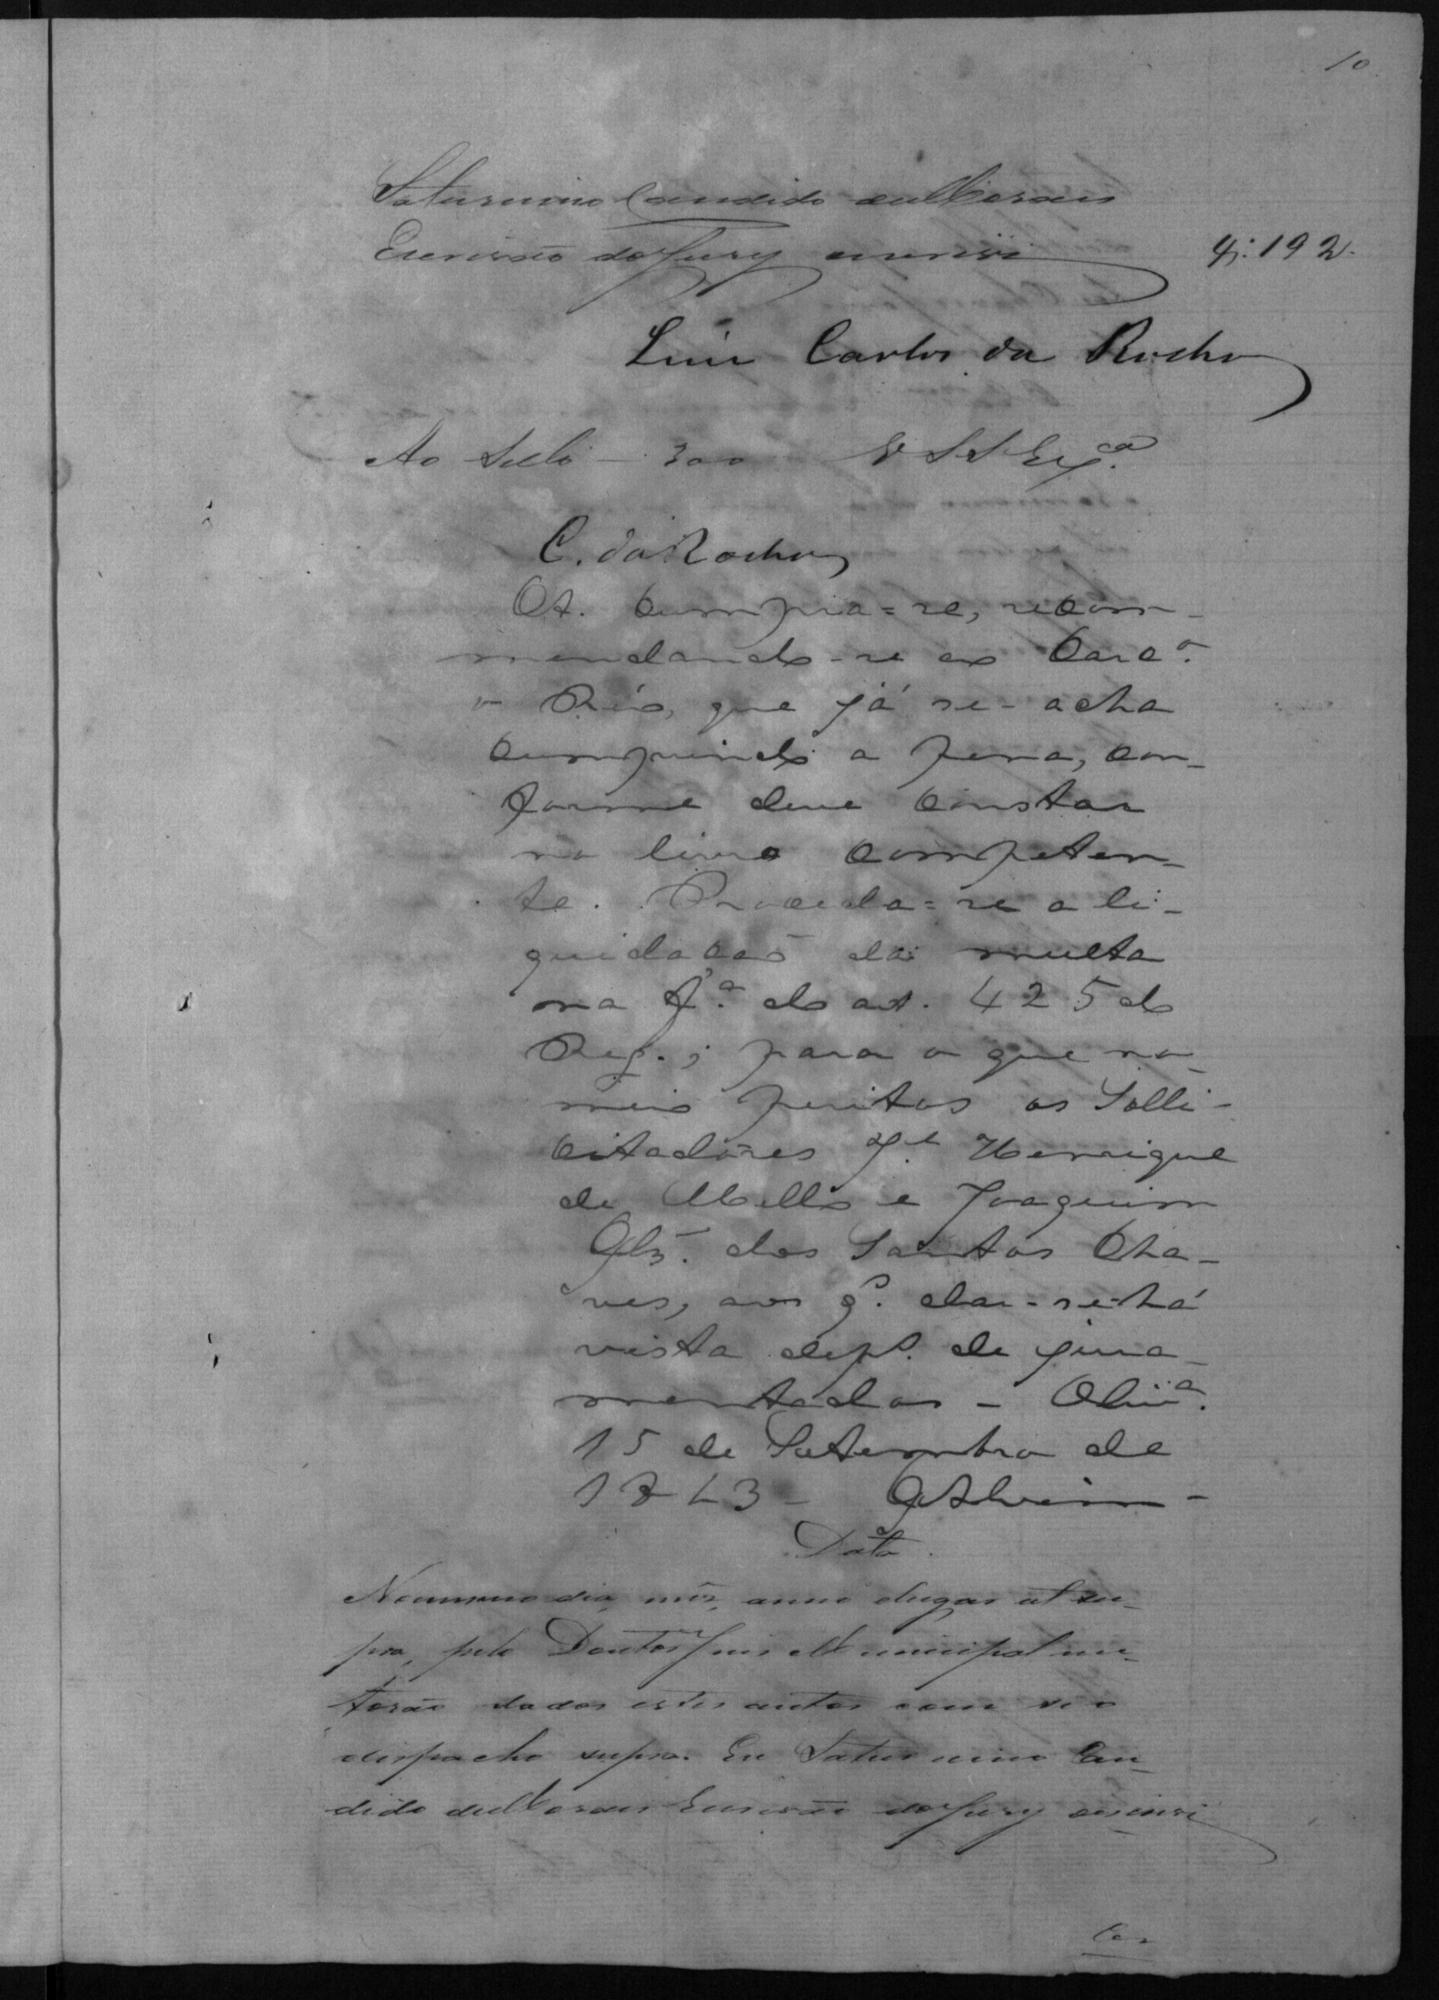 10
Saturnino Candido de Moraes
Escrivão do Jury escrevi
4:192
Luis Carlos da Rocha
Ao Sello 300 V S S Ex.ca
C. da Rocha
A. Cumpra=se, recom-
mendando-se ao Carc.o
o Réo, que já se-acha
cumprindo a pena, con-
forme deve constar
no livro competen-
te. Proceda=se a li-
quidação da multa
na f.a do art. 425 do
Reg.; para o que no-
meio peritos os Solli-
citadores J.e Henrique
de Mello e Joaquim
Glz. dos Santos Cha-
ves, aos q.s dar-se-há
vista dep.s de jura-
mentados -
15 de Setembro de
1843 -
Data
No mesmo dia, mês, anno e lugar ut su-
pra, pelo Doutor Juis Municipal me
forão dados estes autos com seo
despacho supra. Eu Saturnino Can-
dido de Moraes Escrivão do Jury escrevi